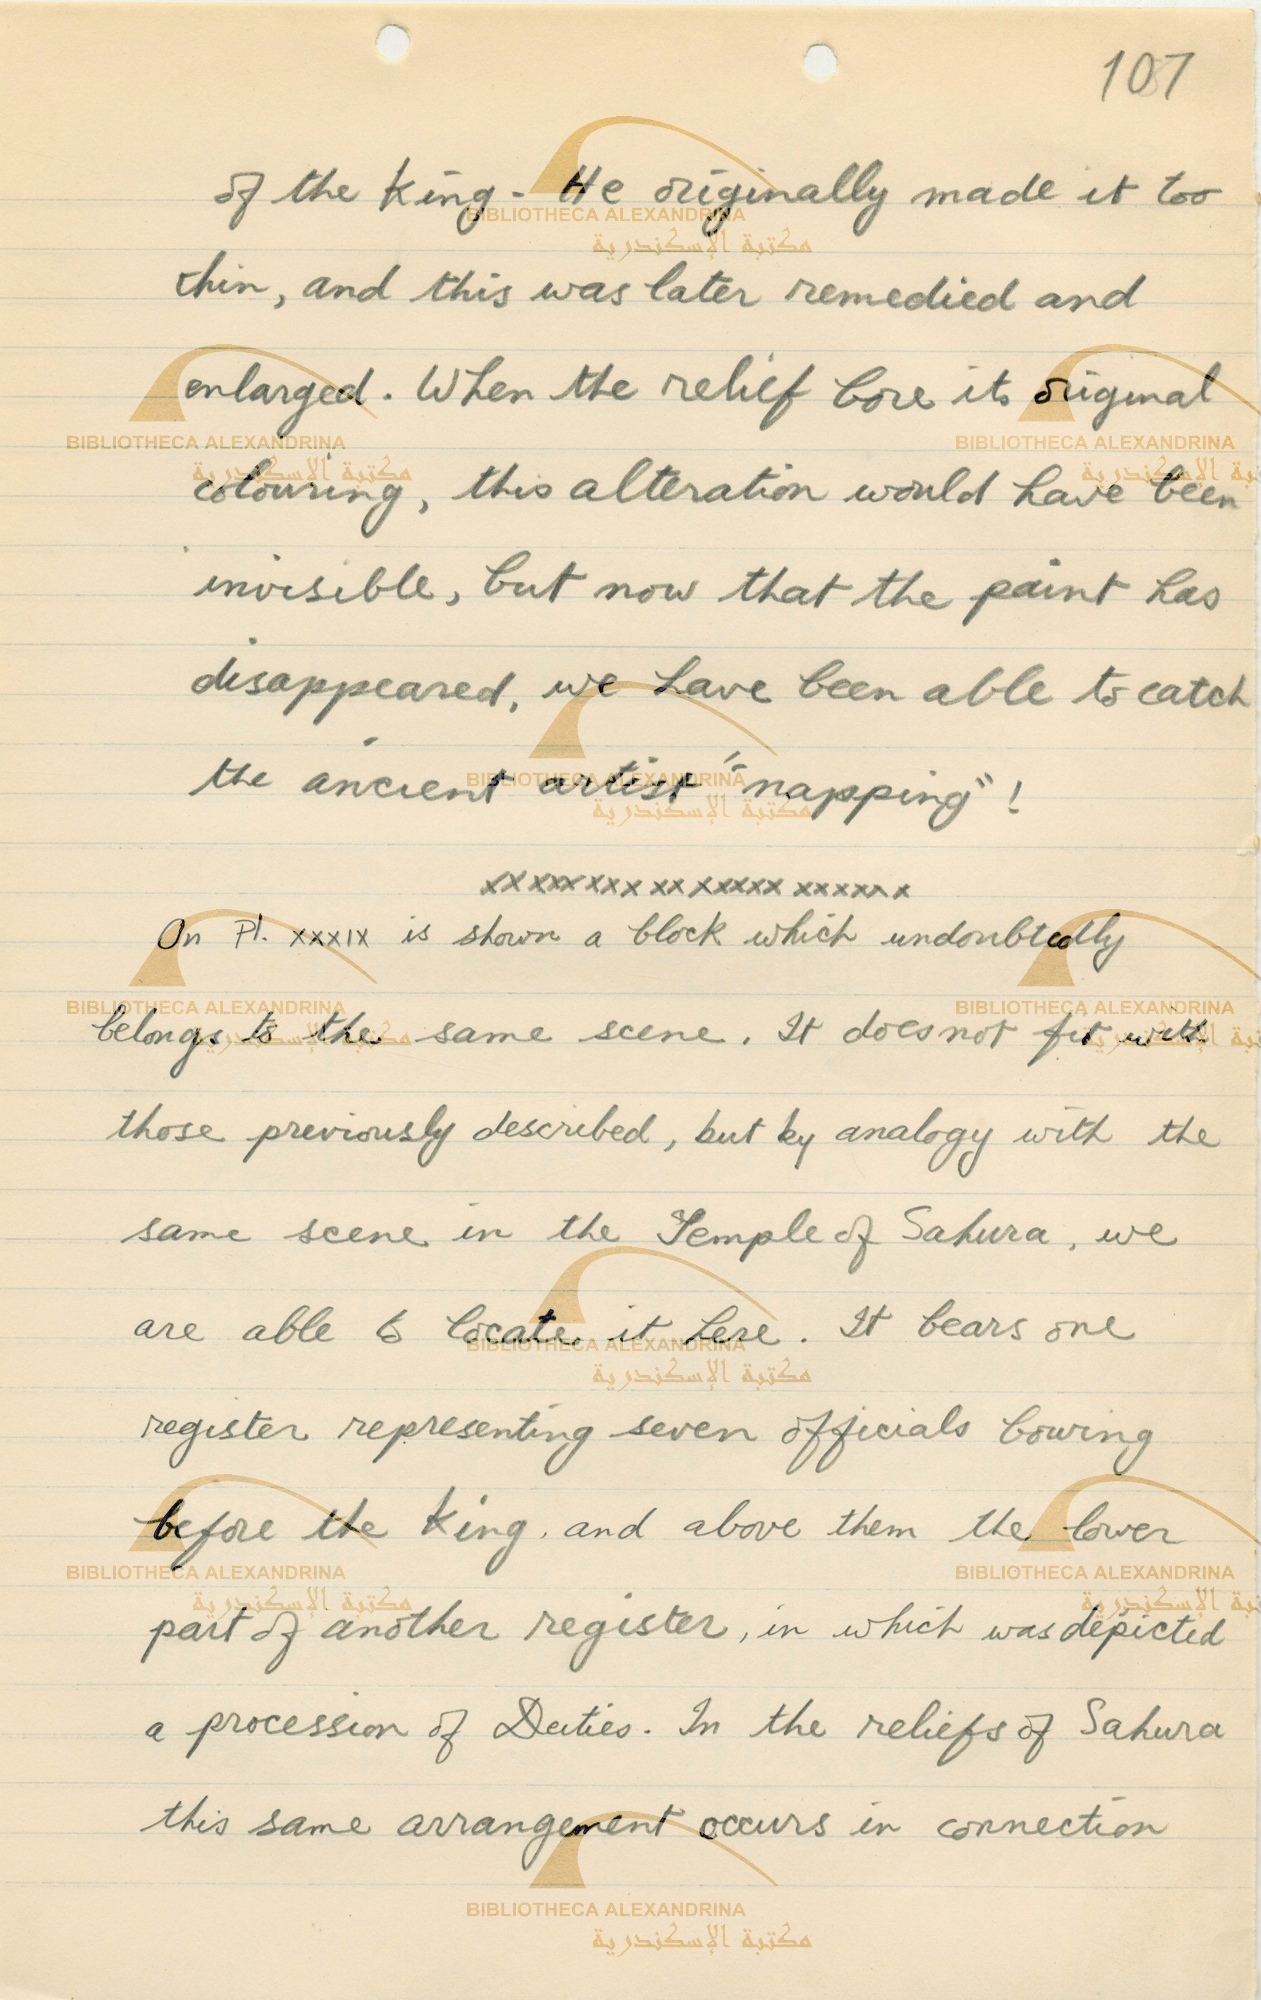 107
of the King - He originally made it too
thin, and this was later remedied and
enlarged. When the relief bore its original
colouring, this alteration would have been
invisible, but now that the paint has
disappeared, we have been able to catch
the ancient artist "napping"!
xxxxxxxx xx xxxxx xxxxxx
On Pl. XXXIX is shown a block which undoubtedly
belongs to the same scene. It does not fit with
those previously described, but by analogy with the
same scene in the Temple of Sahura, we
are able to locate it here. It bears one
register representing seven officials bowing
before the King. and above them the lower
part of another register, in which was depicted
a procession of Deities. In the reliefs of Sahura
this same arrangement occurs in connection
BIBLIOTHECA ALEXANDRINA
مكتبة الإسكندرية